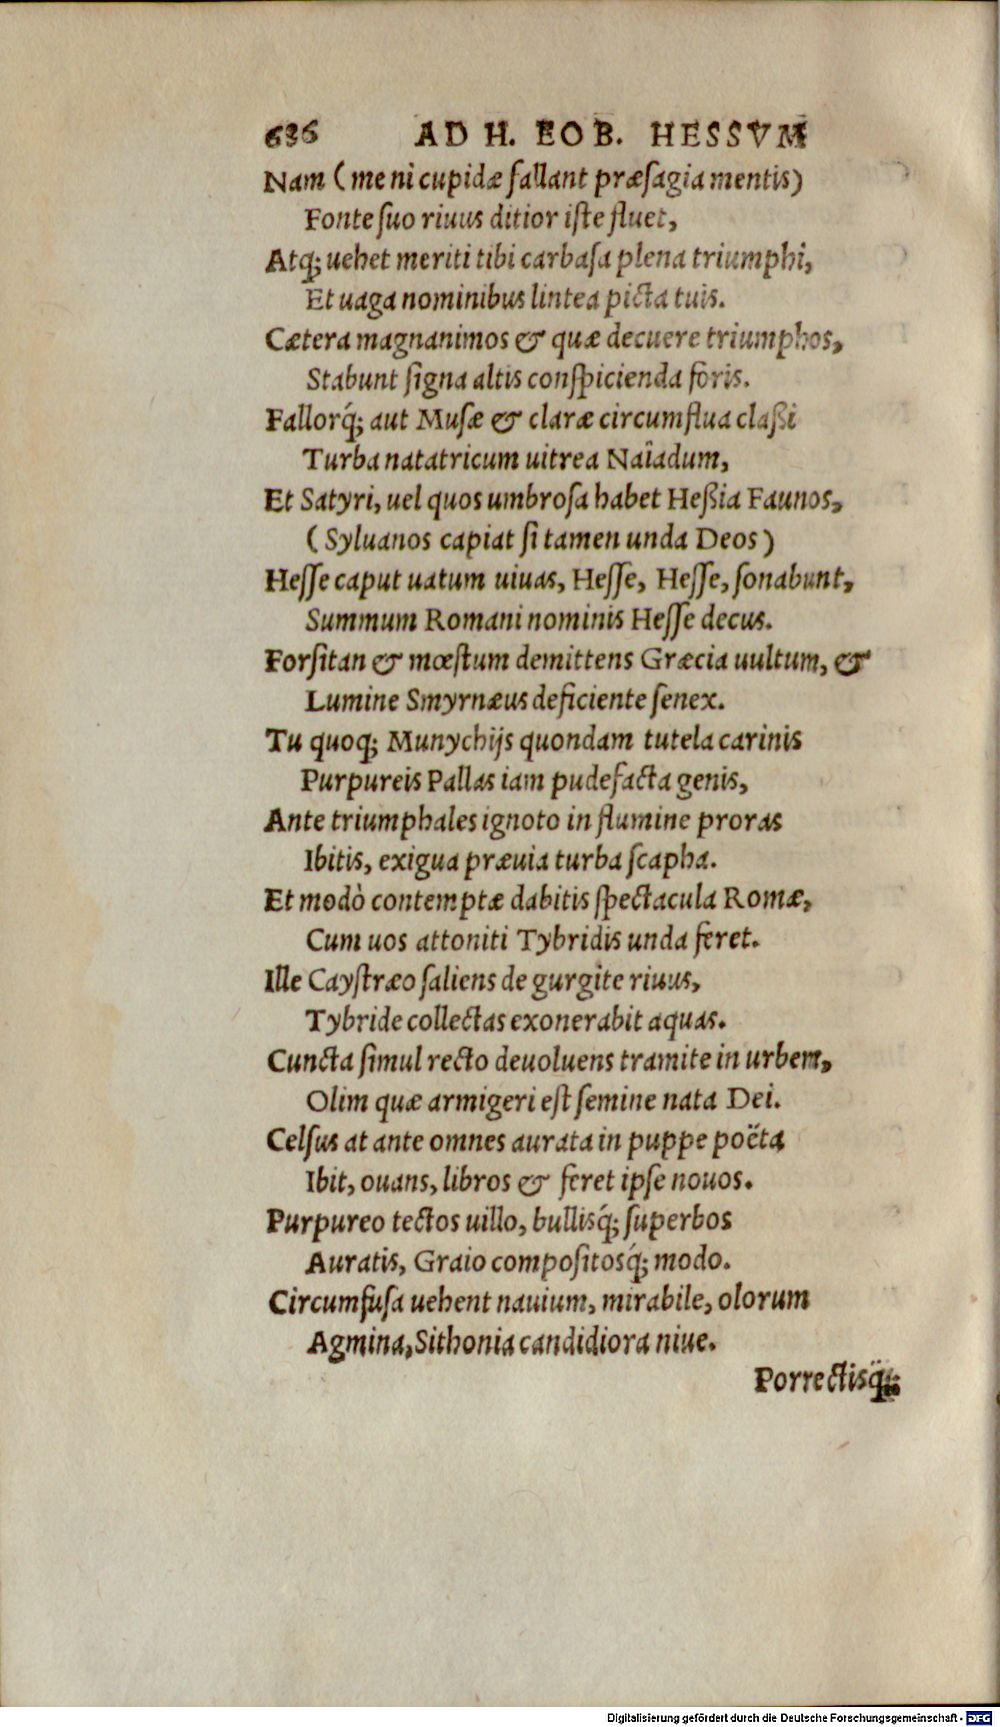 636 AD H. EOB. HESSVM
Nam (me nî cupidæ fallant præſagia mentis)
Fonte ſuo riuus ditior iſte fluet,
Atq; uehet meriti tibi carbaſa plena triumphi,
Et uaga nominibus lintea picta tuis.
Cætera magnanimos & quæ decuere triumphos,
Stabunt ſigna altis conſpicienda foris.
Fallorq́; aut Muſæ & claræ circumflua claßi
Turba natatricum uitrea Naîadum,
Et Satyri, uel quos umbroſa habet Heßia Faunos,
(Syluanos capiat ſi tamen unda Deos)
Heſſe caput uatum uiuas, Heſſe, Heſſe, ſonabunt,
Summum Romani nominis Heſſe decus.
Forſitan & mœſtum demittens Græcia uultum, &
Lumine Smyrnæus deficiente ſenex.
Tu quoq; Munychijs quondam tutela carinis
Purpureis Pallas iam pudefacta genis,
Ante triumphales ignoto in flumine proras
Ibitis, exigua præuia turba ſcapha.
Et modò contemptæ dabitis ſpectacula Romæ,
Cum uos attoniti Tybridis unda feret.
Ille Cayſtræo ſaliens de gurgite riuus,
Tybride collectas exonerabit aquas.
Cuncta ſimul recto deuoluens tramite in urbem,
Olim quæ armigeri eſt ſemine nata Dei.
Celſus at ante omnes aurata in puppe poëta
Ibit, ouans, libros & feret ipſe nouos.
Purpureo tectos uillo, bullisq́; ſuperbos
Auratis, Graio compoſitosq́; modo.
Circumfuſa uehent nauium, mirabile, olorum
Agmina, Sithonia candidiora niue.
Porrectisq́;
Digitalisierung gefördert durch die Deutsche Forschungsgemeinschaft - DFG